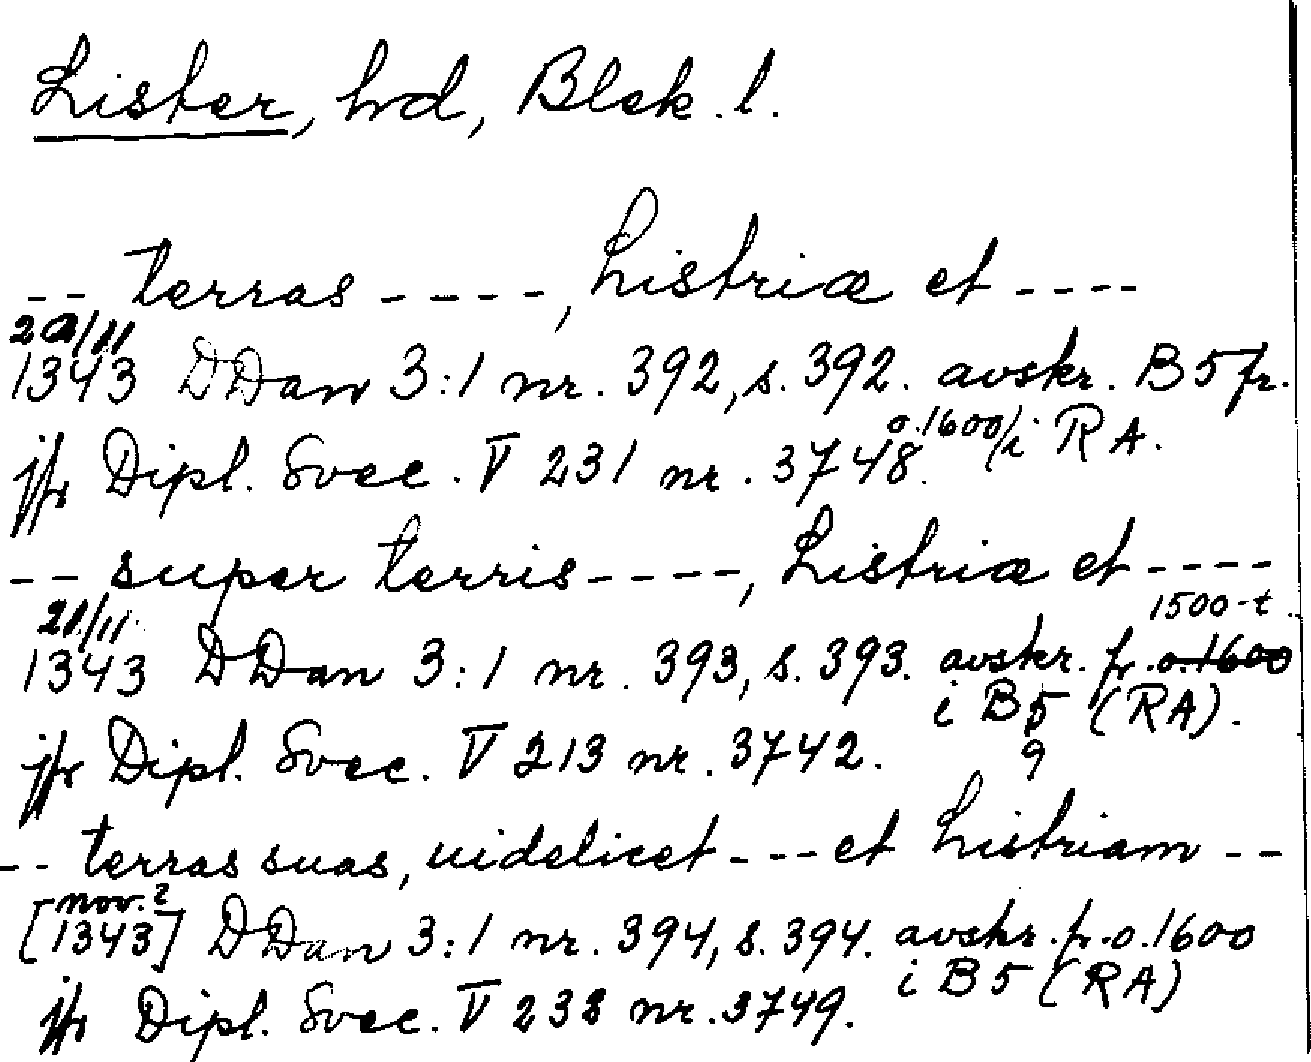 Lister, hd, Blek. l.
-- terras ----, Listriæ et ----
20/11
1343 DDan 3:1 nr. 392, s. 392. avskr. B5 fr.
o. 1600/i RA.
jfr Dipl. Svec. V 231 nr. 3748.
-- super terris ----, Listriæ et ----
21/11
1500-t.
1343 DDan 3:1 nr. 393, s. 393. avskr. fr. o. 1600
i B5 (RA).
9
jfr Dipl. Svec. V 213 nr. 3742.
-- terras suas, uidelicet --- et Listriam --
nov.?
[1343] DDan 3:1 nr. 394, s. 394. avskr. fr. o. 1600
i B5 (RA)
jfr Dipl. Svec. V 232 nr. 3749.